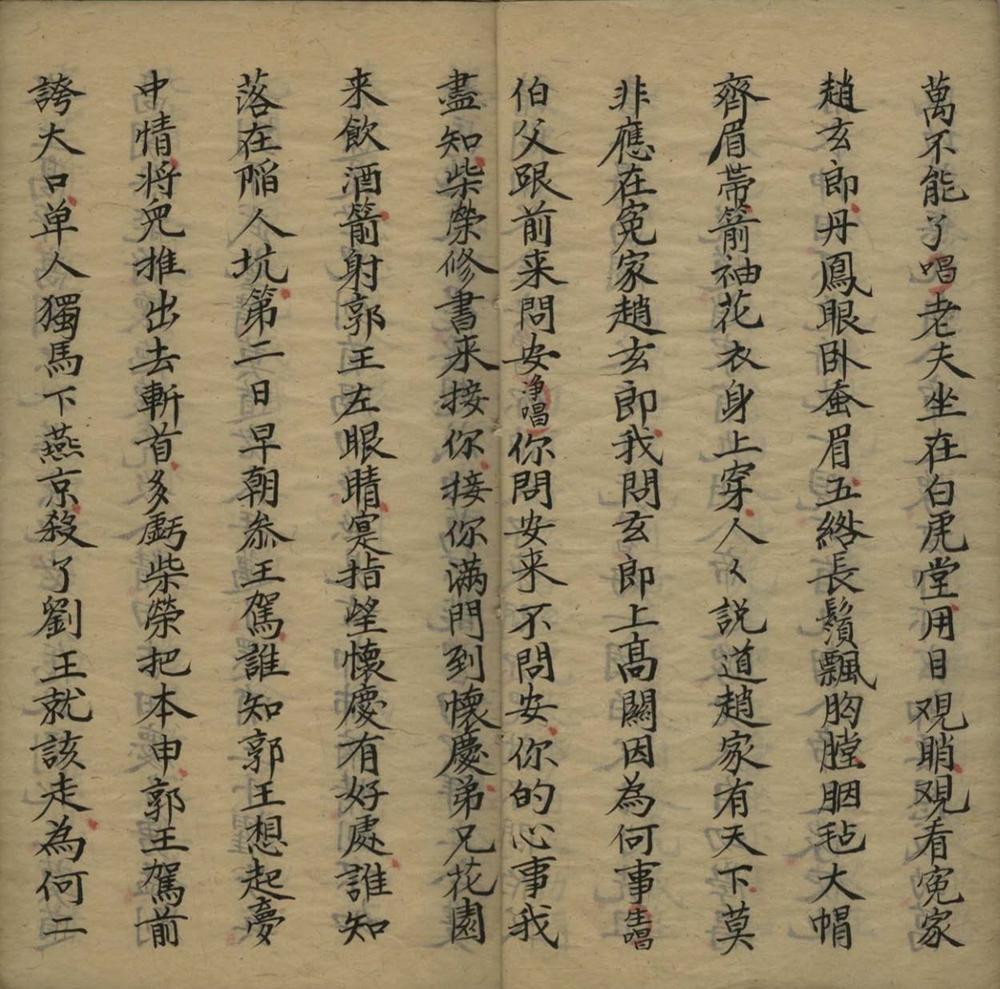 萬不能了唱老夫坐在白虎堂用目观睄观看冤家
趙玄郎丹鳳眼卧蚕眉五绺長鬚飄胸膛胭毡大帽
齊眉帶箭袖花衣身上穿人〻説道趙家有天下莫
非應在冤家趙玄郎我問玄郎上高關因為何事生唱
伯父跟前来問安净唱你問安来不問安你的心事我
盡知柴榮修書来接你接你满門到懷慶弟兄花園
来飲酒箭射郭王左眼睛寔指望懷慶有好處誰知
落在陷人坑第二日早朝叅王駕誰知郭王想起夢
中情将児推出去斬首多虧柴榮把本申郭王駕前
誇大口单人獨馬下燕京殺了劉王就該走為何二